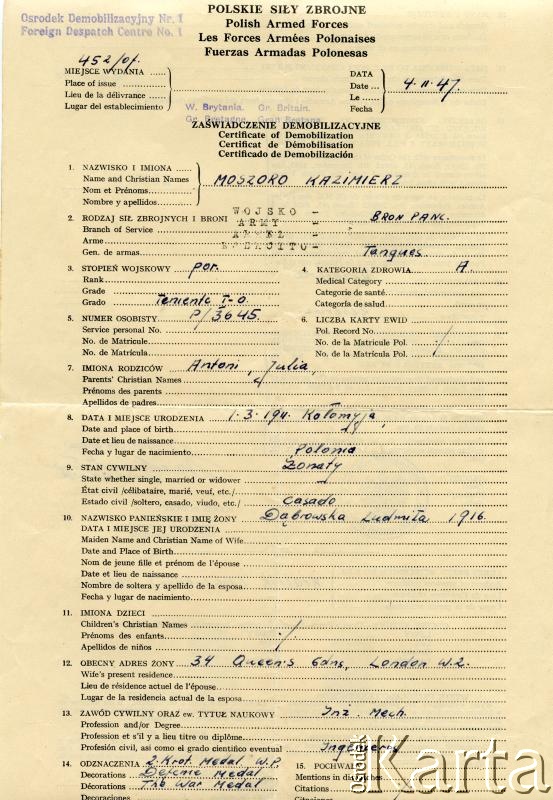 POLSKIE SIŁY ZBROJNE
Polish Armed Forces
Les Forces Armées Polonaises
Fuerzas Armadas Polonesas
Ośrodek Demobilizacyjny Nr. 1
Foreign Despatch Centre No. 1
452/Of.
MIEJSCE WYDANIA
Place of issue
Lieu de la délivrance
Lugar del establecimiento
W. Brytania. Gr. Britain.
Gr. Bretagne. Gran Bretana.
DATA
Date 4.11.47.
Le
Fecha
ZAŚWIADCZENIE DEMOBILIZACYJNE
Certificate of Demobilization
Certificat de Démobilisation
Certificado de Demobilización
1. NAZWISKO I IMIONA
Name and Christian Names MOSZORO KAZIMIERZ
Nom et Prénoms
Nombre y apellidos
2. RODZAJ SIŁ ZBROJNYCH I BRONI WOJSKO - BROŃ PANC.
Branch of Service ARMY -
Arme
Gen. de armas EJERCITO - Tanques
3. STOPIEŃ WOJSKOWY por.
Rank
Grade
Grado Teniente I-o
4. KATEGORIA ZDROWIA A.
Medical Category
Categorie de santé
Categoría de salud
5. NUMER OSOBISTY P/3645
Service personal No.
No. de Matricule
No. de Matrícula
6. LICZBA KARTY EWID
Pol. Record No.
No. de la Matricule Pol.
No. de la Matrícula Pol.
7. IMIONA RODZICÓW Antoni, Julia,
Parents' Christian Names
Prénoms des parents
Apellidos de padres
8. DATA I MIEJSCE URODZENIA 1.3.1911. Kołomyja,
Date and place of birth
Date et lieu de naissance
Fecha y lugar de nacimiento Polonia
9. STAN CYWILNY Żonaty
State whether single, married or widower
État civil /célibataire, marié, veuf, etc./
Estado civil /soltero, casado, viudo, etc./ casado
10. NAZWISKO PANIEŃSKIE I IMIĘ ŻONY Dąbrowska Ludmiła 1916
DATA I MIEJSCE JEJ URODZENIA
Maiden Name and Christian Name of Wife
Date and Place of Birth
Nom de jeune fille et prénom de l'épouse
Date et lieu de naissance
Nombre de soltera y apellido de la esposa
Fecha y lugar de nacimiento
11. IMIONA DZIECI
Children's Christian Names
Prénoms des enfants
Apellidos de niños
12. OBECNY ADRES ŻONY 34 Queen's Gdns, London W.2.
Wife's present residence
Lieu de résidence actuel de l'épouse
Lugar de la residencia actual de la esposa
13. ZAWÓD CYWILNY ORAZ ew. TYTUŁ NAUKOWY Inż. Mech.
Profession and/or Degree
Profession et s'il y a lieu titre ou diplôme
Profesión civil, asi como el grado científico eventual Ingeniero
14. ODZNACZENIA 2. Krot. Medal W.P.
Decorations Defence Medal
Décorations The War Medal
Decoraciones
15. POCHWAŁY
Mentions in dispatches
Citations
Citaciones
ośrodek
Karta